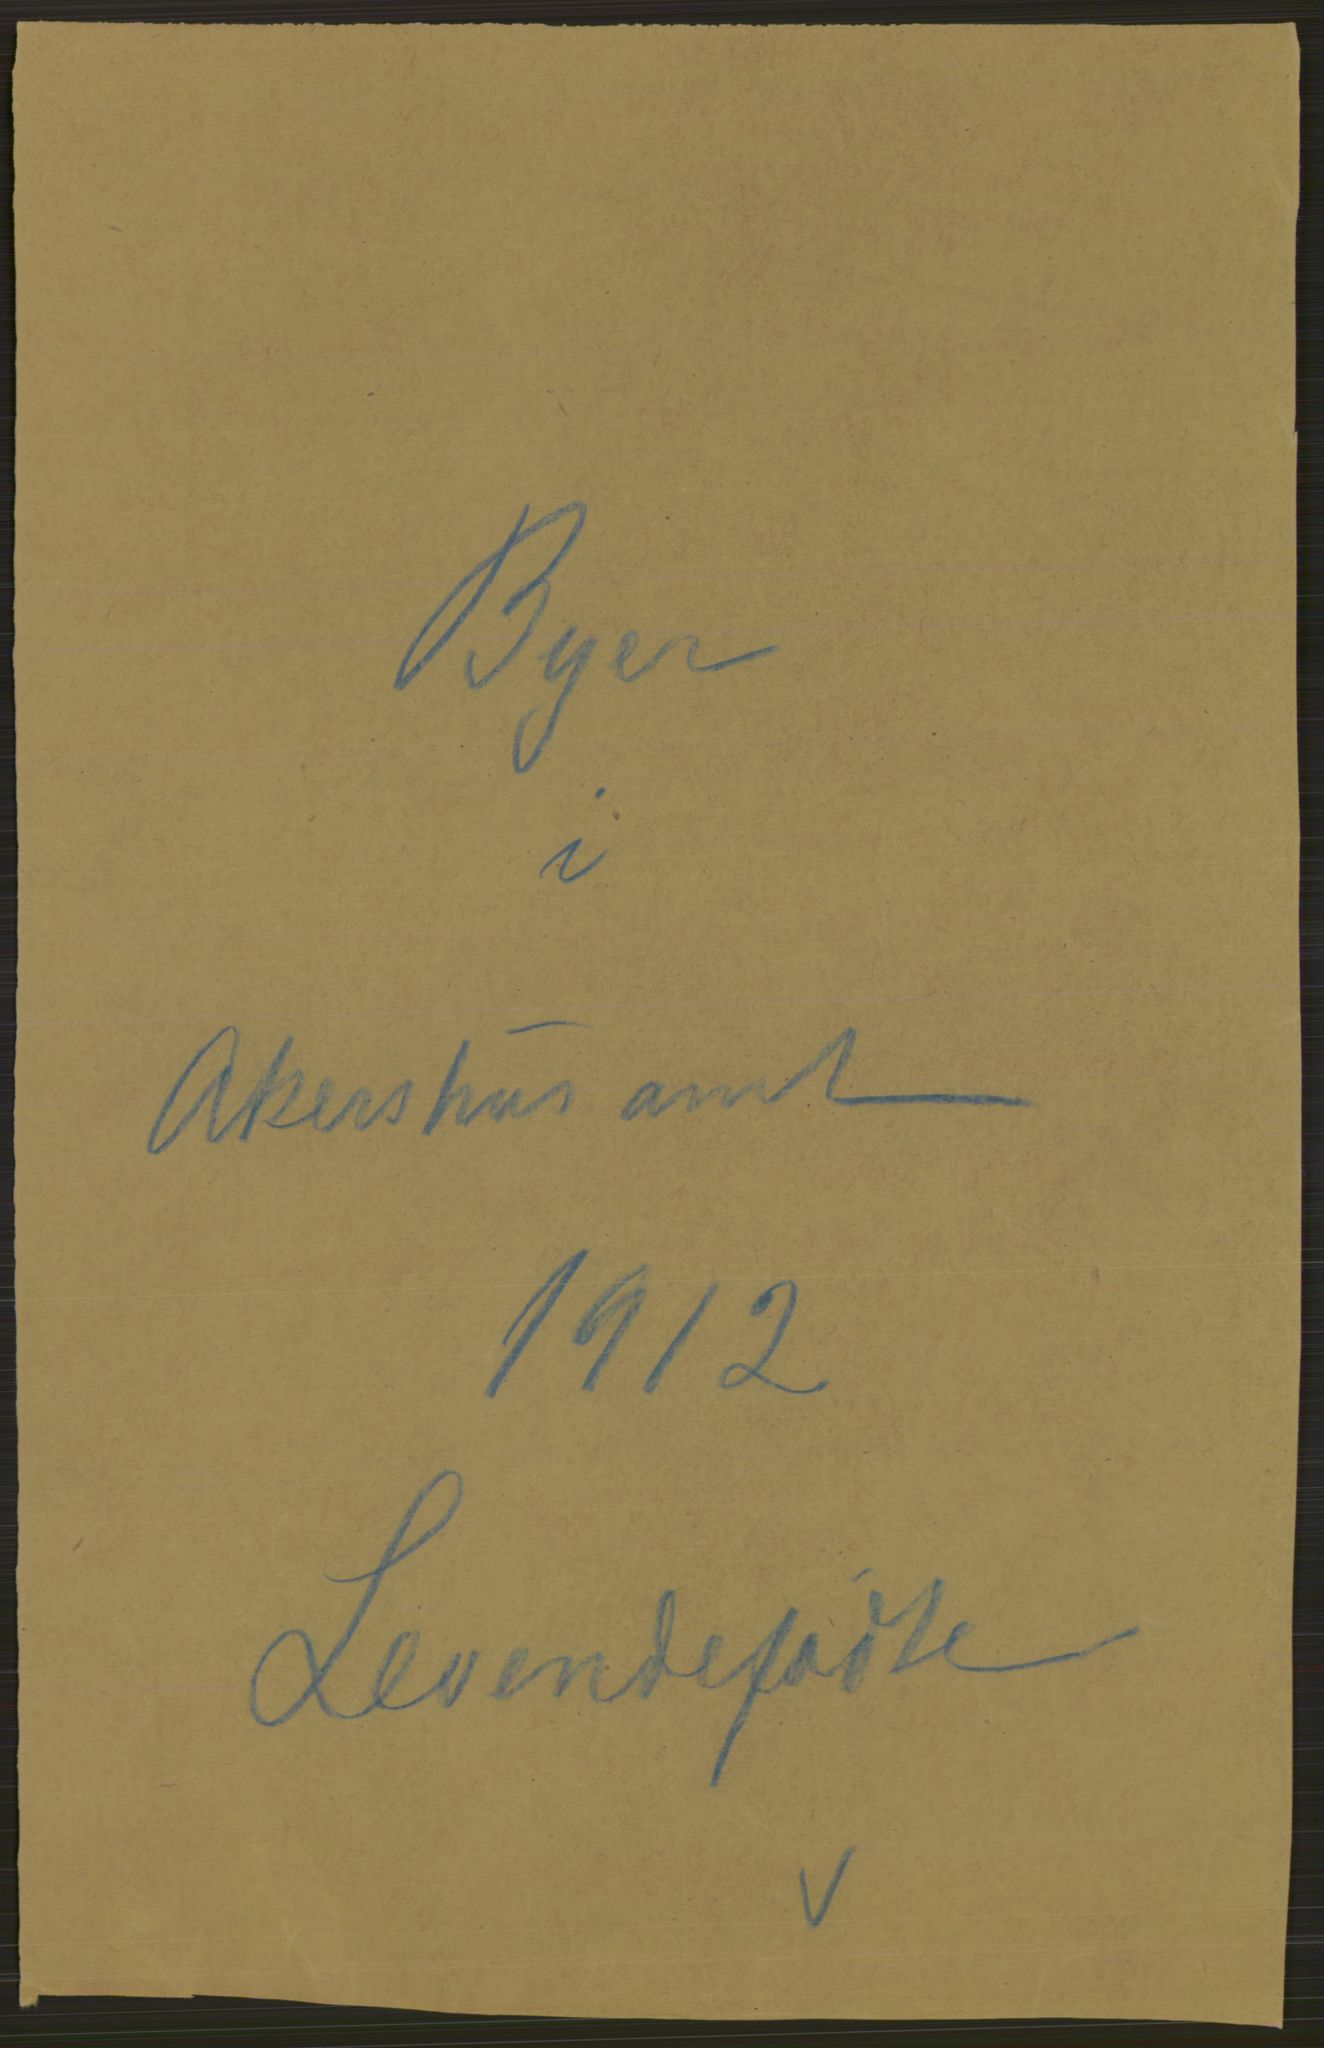 Byer
i
Akershus amt
1912
Levendefødte
v